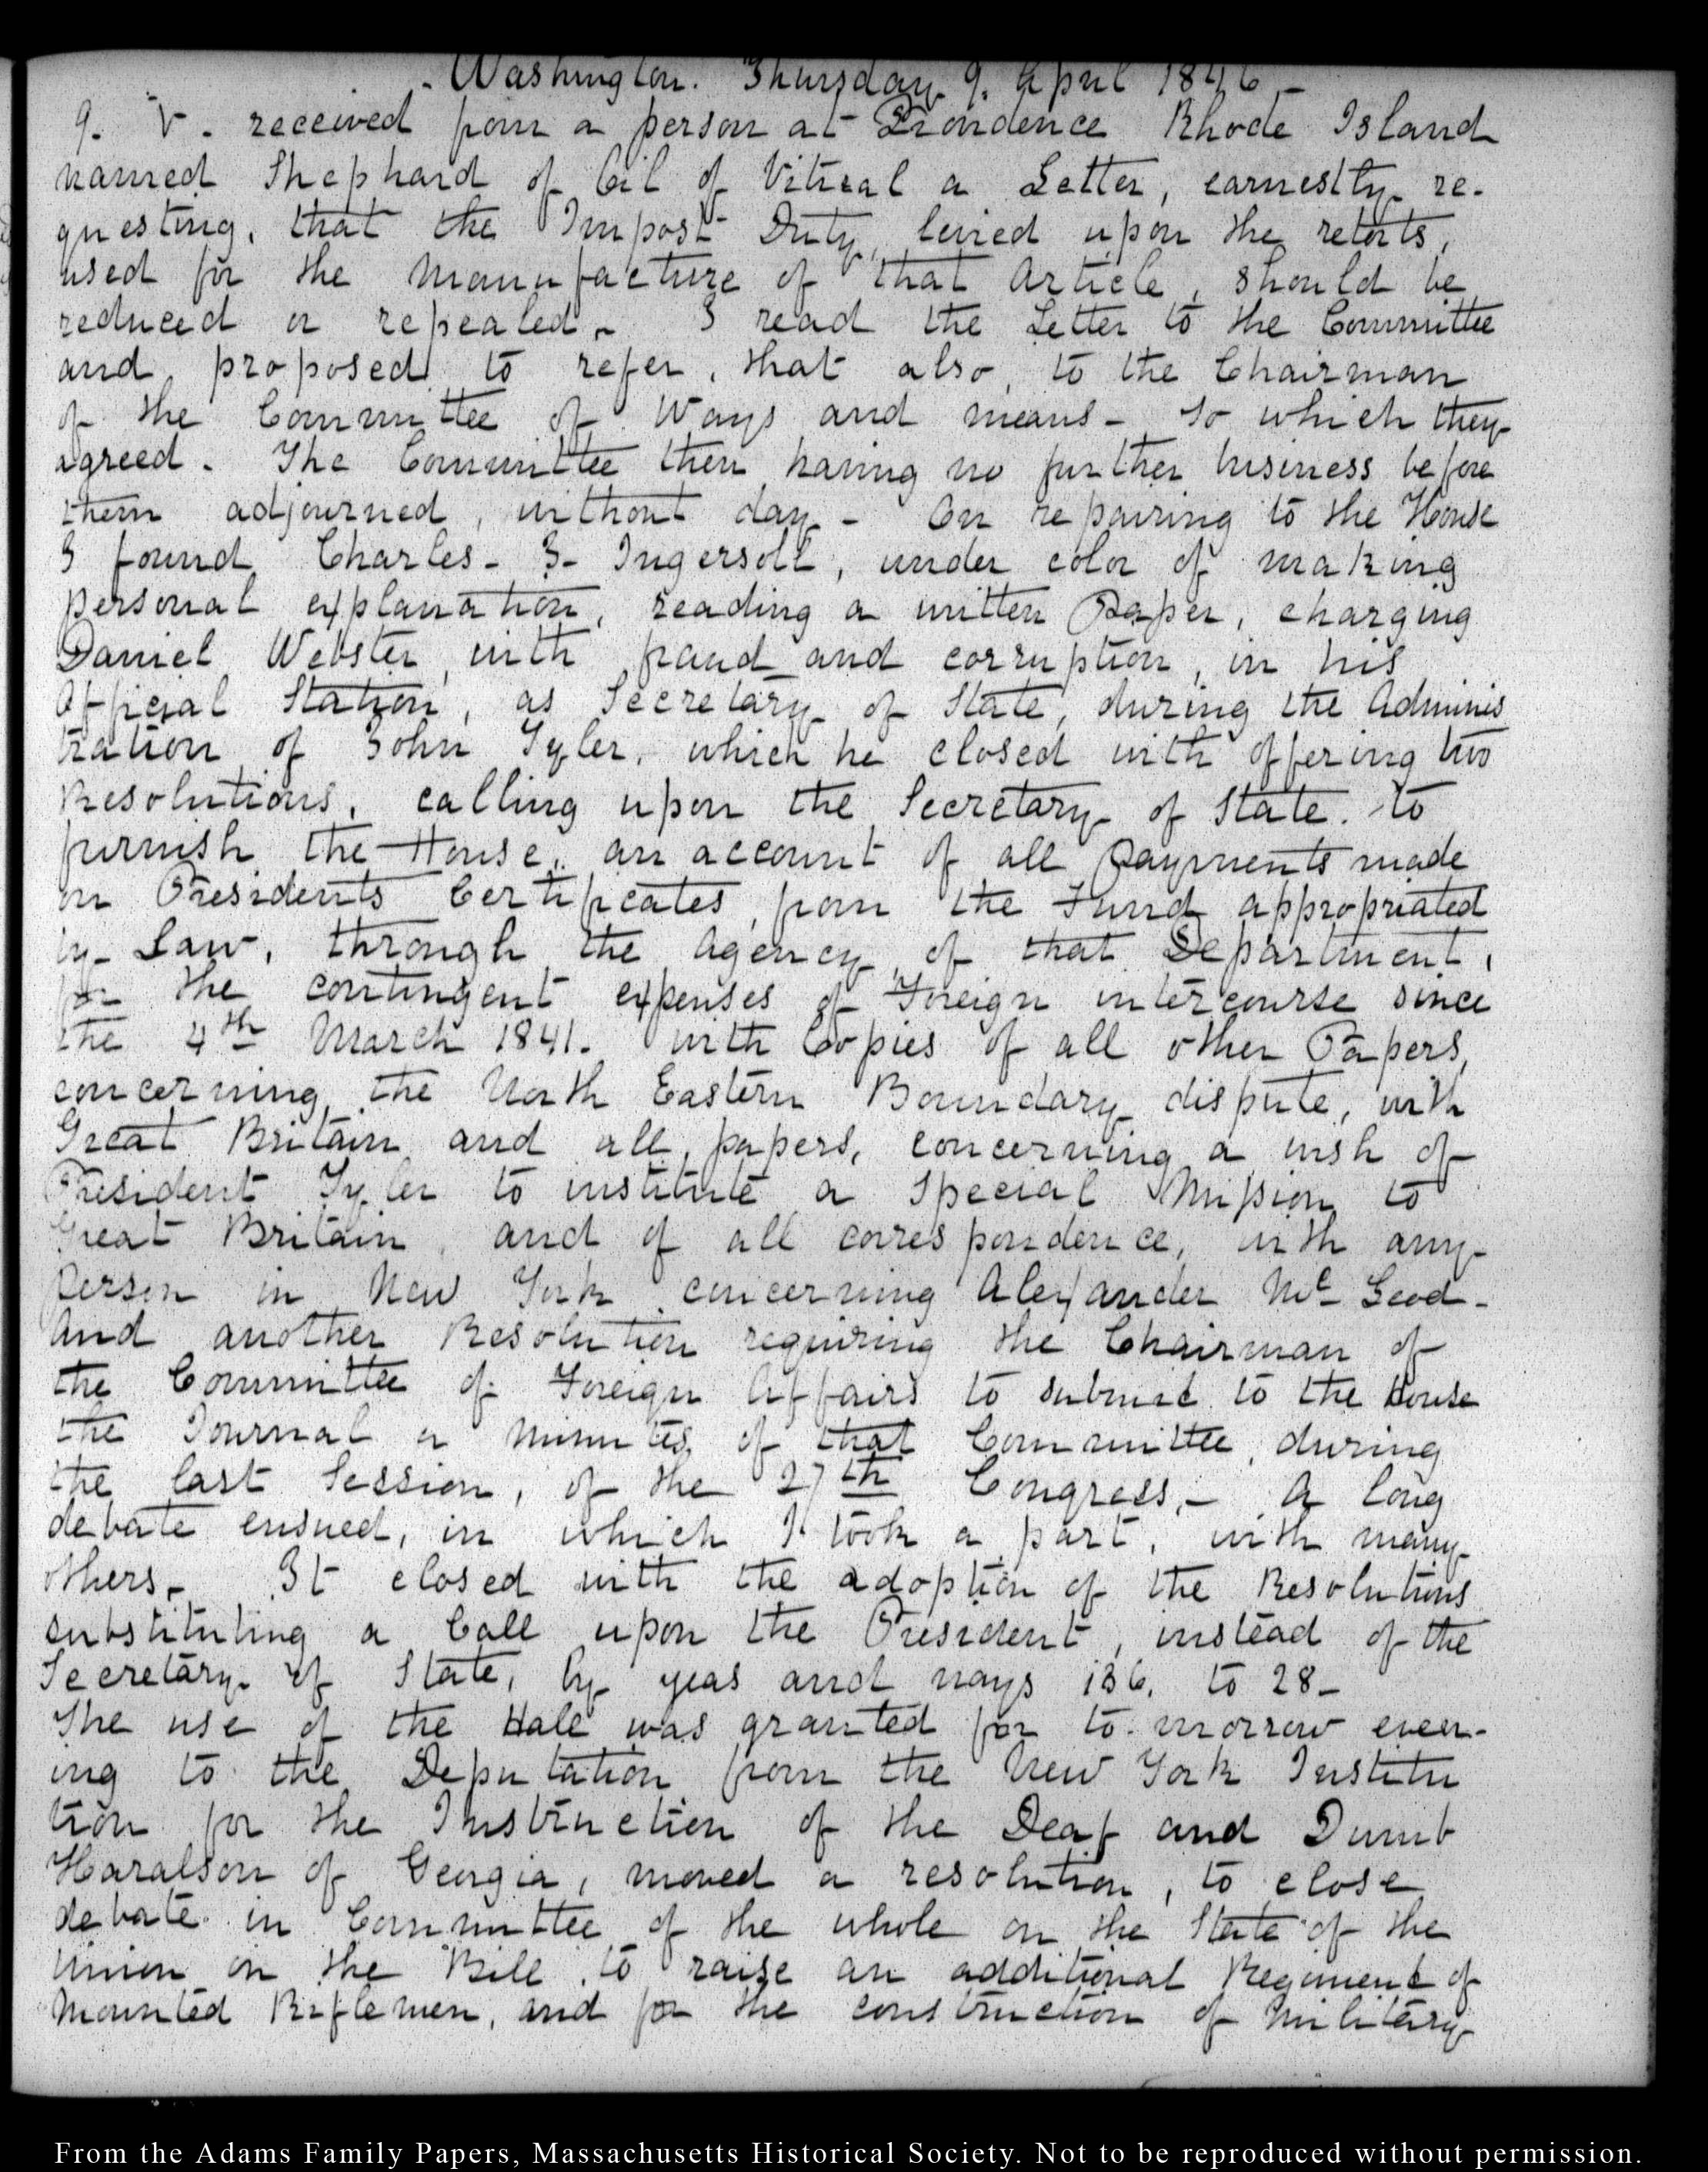 Washington. Thursday 9. April 1846 –
9. V. received from a person at Providence Rhode Island
named Shephard of Oil of Vitreal a Letter, earnestly re-
questing, that the Impost Duty, levied upon the retorts,
used for the manufacture of that Article, should be
reduced or repealed – I read the Letter to the Committee
and proposed to refer, that also, to the Chairman
of the Committee of Ways and means – to which they
agreed. The Committee then having no further business before
them adjourned, without day – On repairing to the House
I found Charles – J – Ingersoll, under color of making
personal explanation, reading a written Paper, charging
Daniel Webster with fraud and corruption, in his
Official Station, as Secretary of State, during the Adminis
tration of John Tyler, which he closed with offering two
Resolutions, calling upon the Secretary of State. to
furnish the House, an account of all Payments made
on Presidents Certificates, from the Fund appropriated
by Law, through the Agency of that Department,
for the contingent expenses of Foreign intercourse since
the 4th March 1841. with Copies of all other Papers,
concerning the North Eastern Boundary dispute, with
Great Britain and all papers, concerning a wish of
President Tyler to institute a Special Mission to
Great Britain, and of all correspondence, with any
Person in New York concerning Alexander Mc Leod –
And another Resolution requiring the Chairman of
the Committee of Foreign Affairs to submit to the House
the Journal or minutes of that Committee, during
the last Session, of the 27th Congress, – A long
debate ensued, in which I took a part, with many
others – It closed with the adoption of the Resolutions
substituting a Call upon the President, instead of the
Secretary of State, by yeas and nays 136, to 28 –
The use of the Hall was granted for to-morrow even-
ing to the Deputation from the New York Institu
tion for the Instruction of the Deaf and Dumb
Haralson of Georgia, moved a resolution, to close
debate in Committee of the whole on the State of the
Union on the Bill, to raise an additional Regiment of
Mounted Riflemen, and for the construction of Military
From the Adams Family Papers, Massachusetts Historical Society. Not to be reproduced without permission.